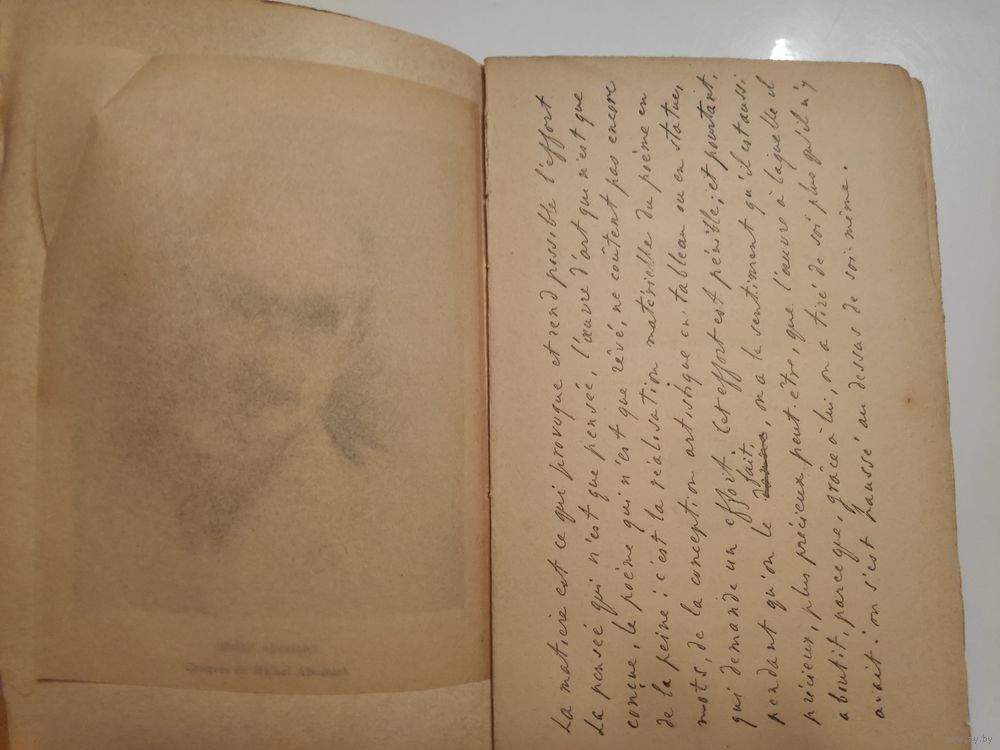 La matière est ce qui provoque et rend possible l'effort
La pensée qui n'est que pensée, l'œuvre d'art qui n'est que
conçue, le poème qui n'est que rêvé, ne coûtent pas encore
de la peine : c'est la réalisation matérielle du poème en
mots, de la conception artistique en tableau ou en statue,
qui demande un effort. Cet effort est pénible, et pourtant,
pendant qu'on le fait, on a le sentiment qu'il est aussi
précieux, plus précieux peut-être, que l'œuvre à laquelle il
aboutit, parce que, grâce à lui, on a tiré de soi plus qu'il n'y
avait : on s'est haussé au dessus de soi-même.